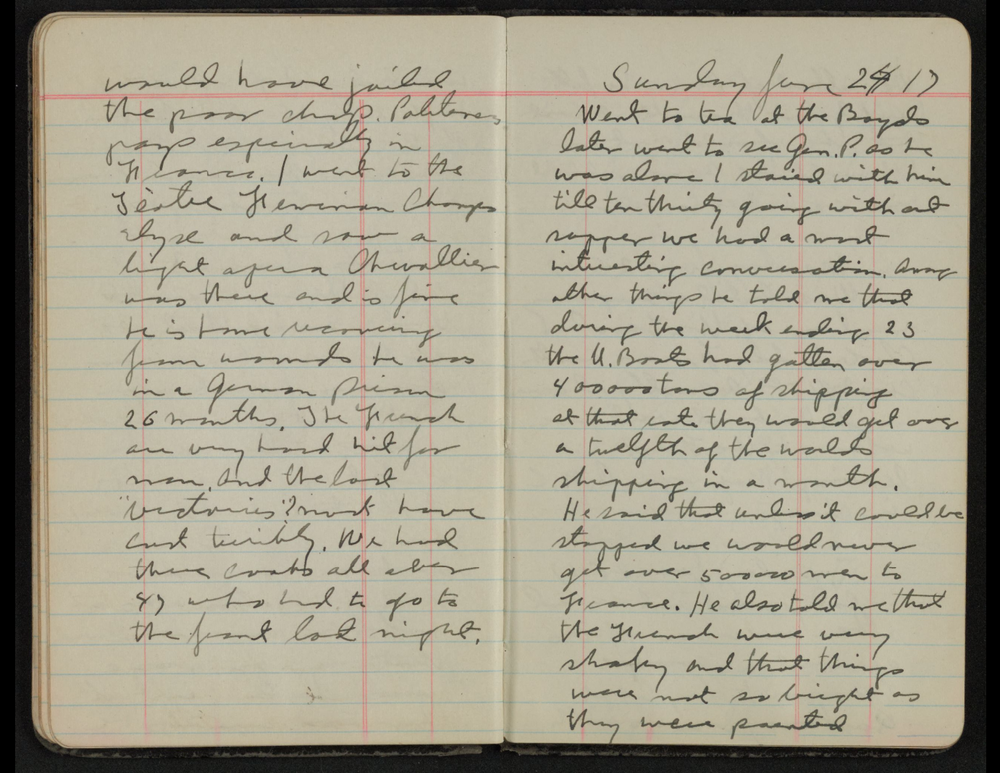 would have jailed
the poor chap. Politeness
pays especially in
France. I went to the
Téatre Feminian Champs
Elyse and saw a
light opera Chevallier
was there and is fine
he is home recovering
from wounds he was
in a German prison
26 months. The French
are very hard hit for
man. And the last
"victories"? must have
cost terribly. We had
three cooks all over
47 who had to go to
the front last night.
Sunday June 24 17
Went to tea at the Boyds
later went to see Gen. P. as he
was alone I staied with him
till ten thirty going with out
supper we had a most
interesting conversation. Among
other things he told me that
during the week ending 23
the U. Boats had gotten over
400000 tons of shipping
at that rate they would get over
a twelfth of the worlds
shipping in a month.
He said that unless it could be
stopped we would never
get over 500000 men to
France. He also told me that
the French were very
shaky and that things
were not so bright as
they were painted